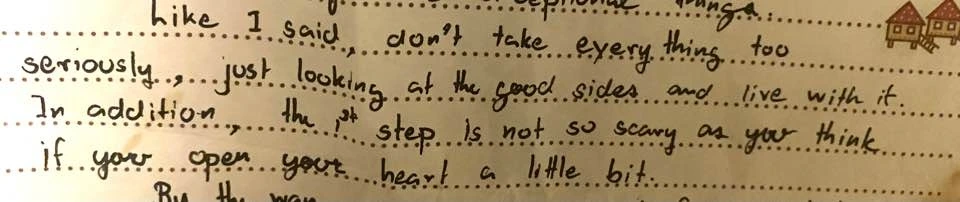 things.
Like I said, don't take every thing too
seriously, just looking at the good sides and live with it.
In addition, the 1st step is not so scary as your think
if your open your heart a little bit.
By the way